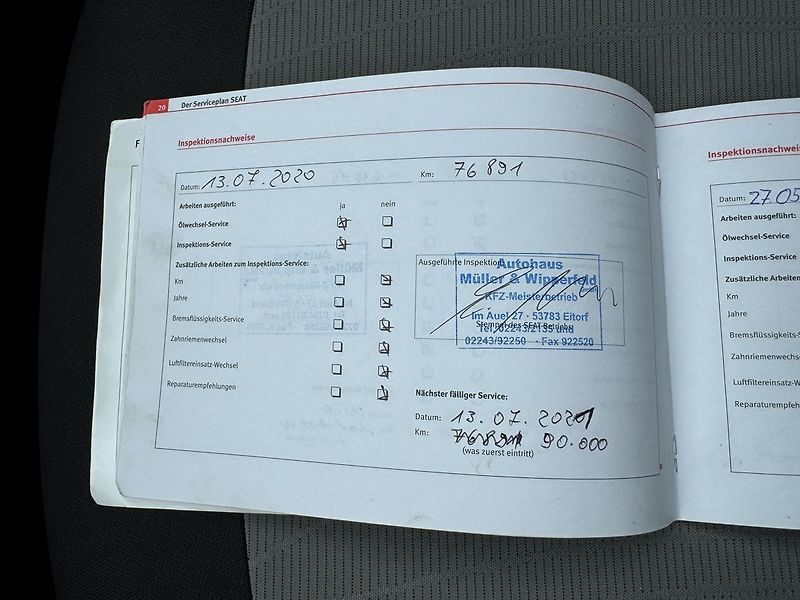 20 Der Serviceplan SEAT
Inspektionsnachweise
Datum: 13.07.2020 Km: 76891
Arbeiten ausgeführt: ja nein
Ölwechsel-Service
Inspektions-Service
Zusätzliche Arbeiten zum Inspektions-Service:
Km
Jahre
Bremsflüssigkeits-Service
Zahnriemenwechsel
Luftfiltereinsatz-Wechsel
Reparaturempfehlungen
Ausgeführte Inspektion
Autohaus
Müller & Wipperfeld
GmbH
KFZ-Meisterbetrieb
Im Auel 27 · 53783 Eitorf
Stempel des SEAT-Betriebs
Tel. 02243/2155 und
02243/92250 · Fax 922520
Nächster fälliger Service:
Datum: 13.07.2021
Km: 76891 90.000
(was zuerst eintritt)
Inspektionsnachwei
Datum: 27.05
Arbeiten ausgeführt:
Ölwechsel-Service
Inspektions-Service
Zusätzliche Arbeiten
Km
Jahre
Bremsflüssigkeits-Service
Zahnriemenwechsel
Luftfiltereinsatz-We
Reparaturempfehlu